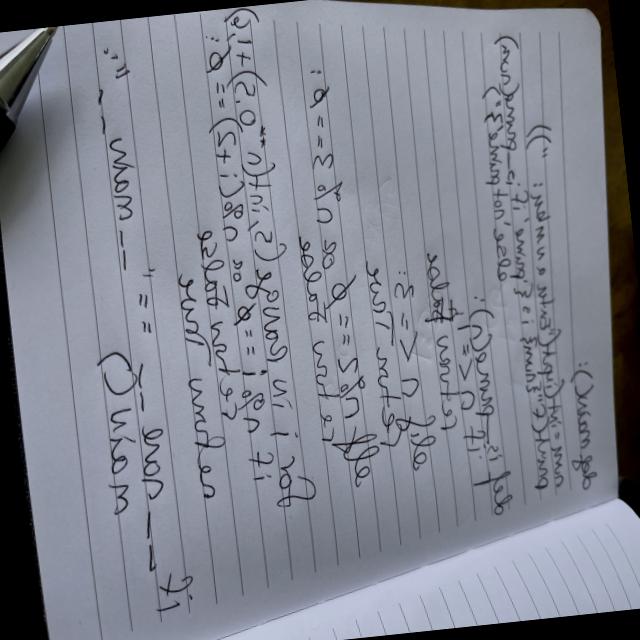 def main():
num = int(input("Enter a number: "))
def is_prime(n):
if n <= 1:
return False
elif n <= 3:
return True
elif n % 2 == 0 or n % 3 == 0:
return False
for i in range(5, int(n ** 0.5) + 1, 6):
if n % i == 0 or n % (i + 2) == 0:
return False
return True
if __name__ ==
"__main__":
main()